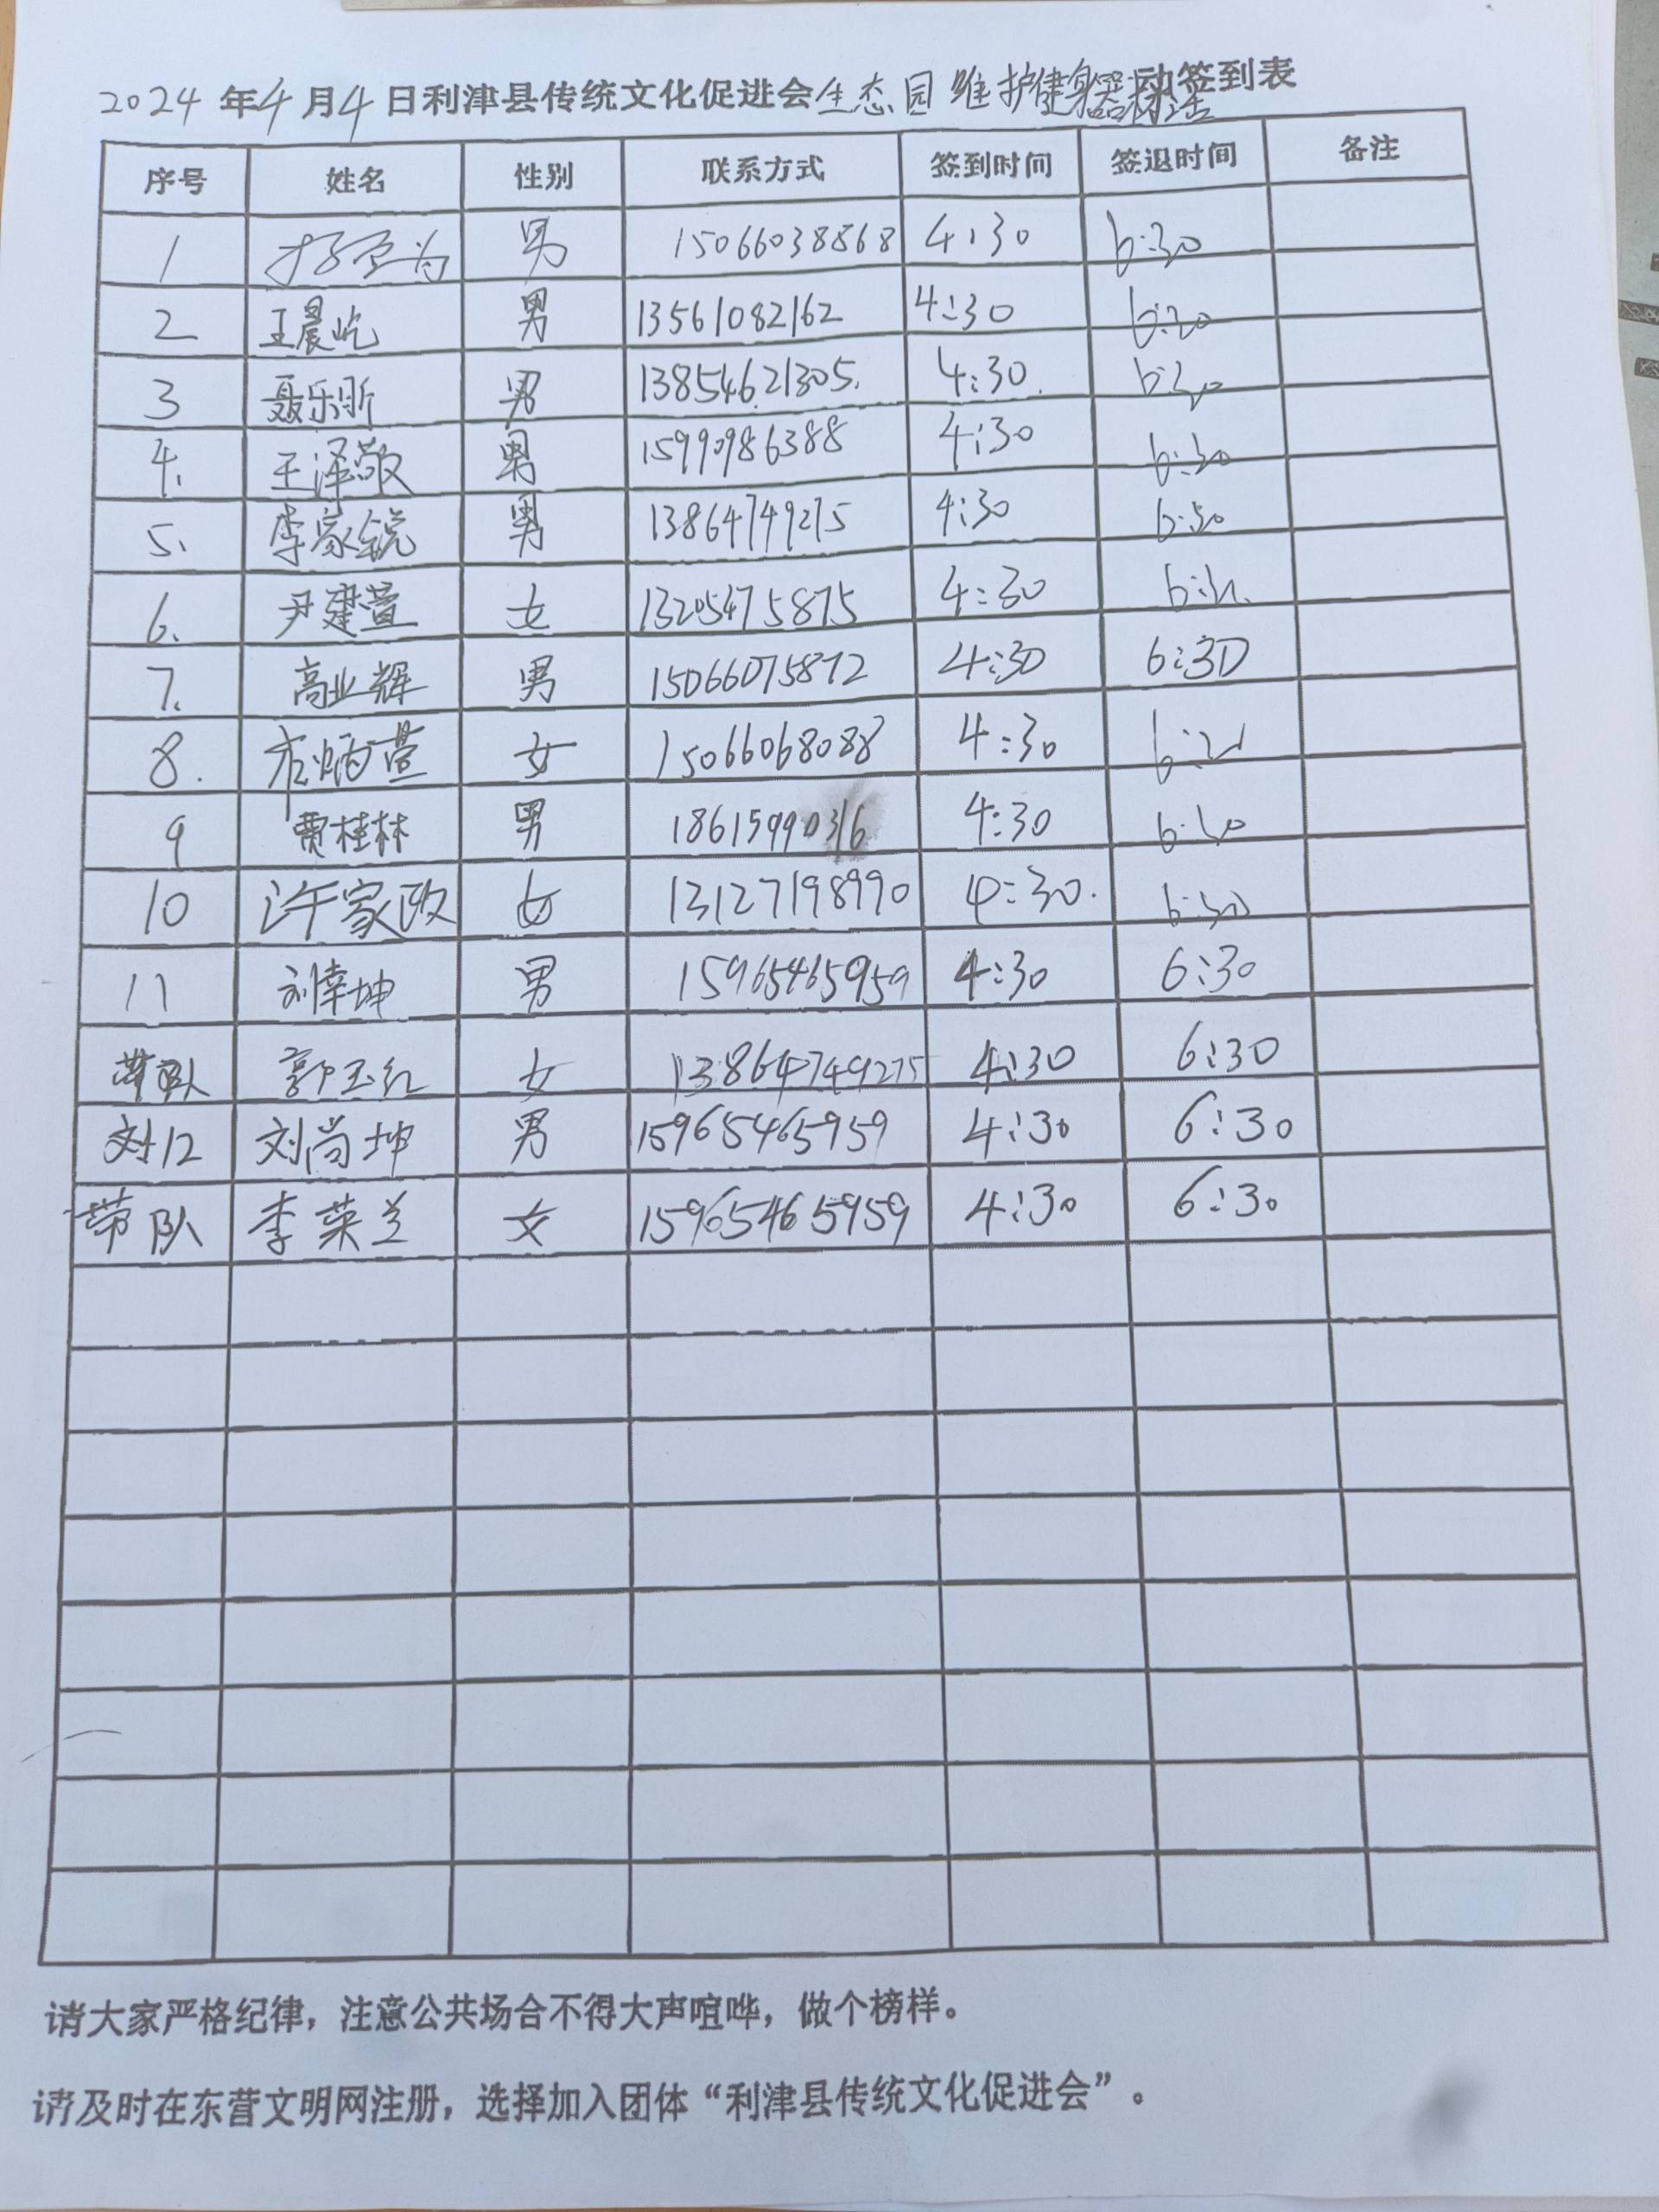 2024年4月4日利津县传统文化促进会生态园维护健身器材活动签到表
序号 姓名 性别 联系方式 签到时间 签退时间 备注
1 男 15066038868 4:30 6:30
2 王晨屹 男 13561082162 4:30 6:30
3 聂乐昕 男 13854621305. 4:30. 6:30
4. 王泽敬 男 15990986388 4:30 6:30
5. 李家锐 男 13864749275 4:30 6:30
6. 尹建萱 女 13205475875 4:30 6:30
7. 高业辉 男 15066075872 4:30 6:30
8. 女 15066068088 4:30 6:30
9 贾桂林 男 18615990316 4:30 6:30
10 许家政 女 13127198990 4:30. 6:30
11 刘幸坤 男 15965465959 4:30 6:30
带队 郭玉红 女 13864749275 4:30 6:30
刘12 刘尚坤 男 15965465959 4:30 6:30
带队 李荣兰 女 15965465959 4:30 6:30
请大家严格纪律，注意公共场合不得大声喧哗，做个榜样。
请及时在东营文明网注册，选择加入团体“利津县传统文化促进会”。